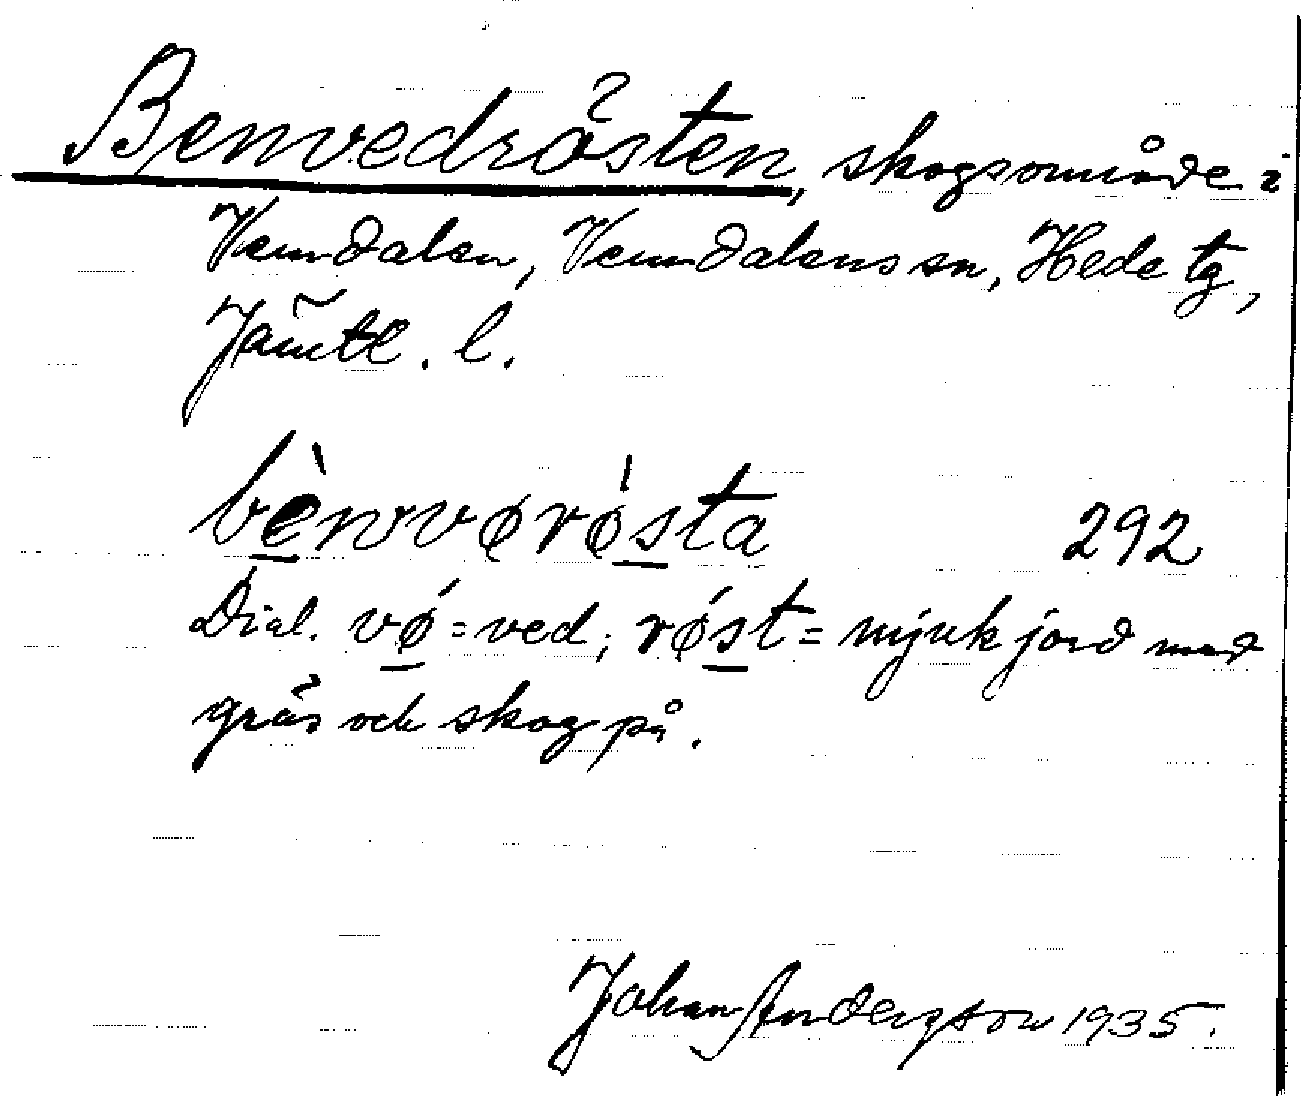 Benvedrösten, skogsområde i
Vemdalen, Vemdalens sn, Hede tg,
Jämtl. l.
bènvvørǿsta 292
Dial. vǿ = ved; rǿst = mjuk jord med
gräs och skog på.
Johan Anderzson 1935.